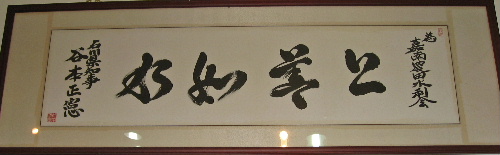 嘉南農田水利会
上善如水
石川県知事
谷本正憲